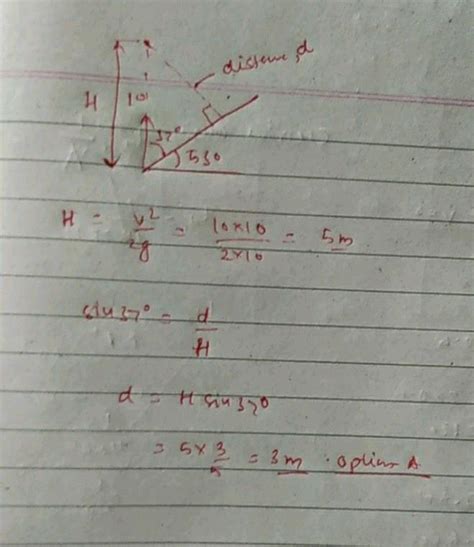 distance, d
H
10
37°
53°
H = v²/2g = 10×10/2×10 = 5m
sin37° = d/H
d = H sin37°
= 5 × 3/5 = 3m . option A